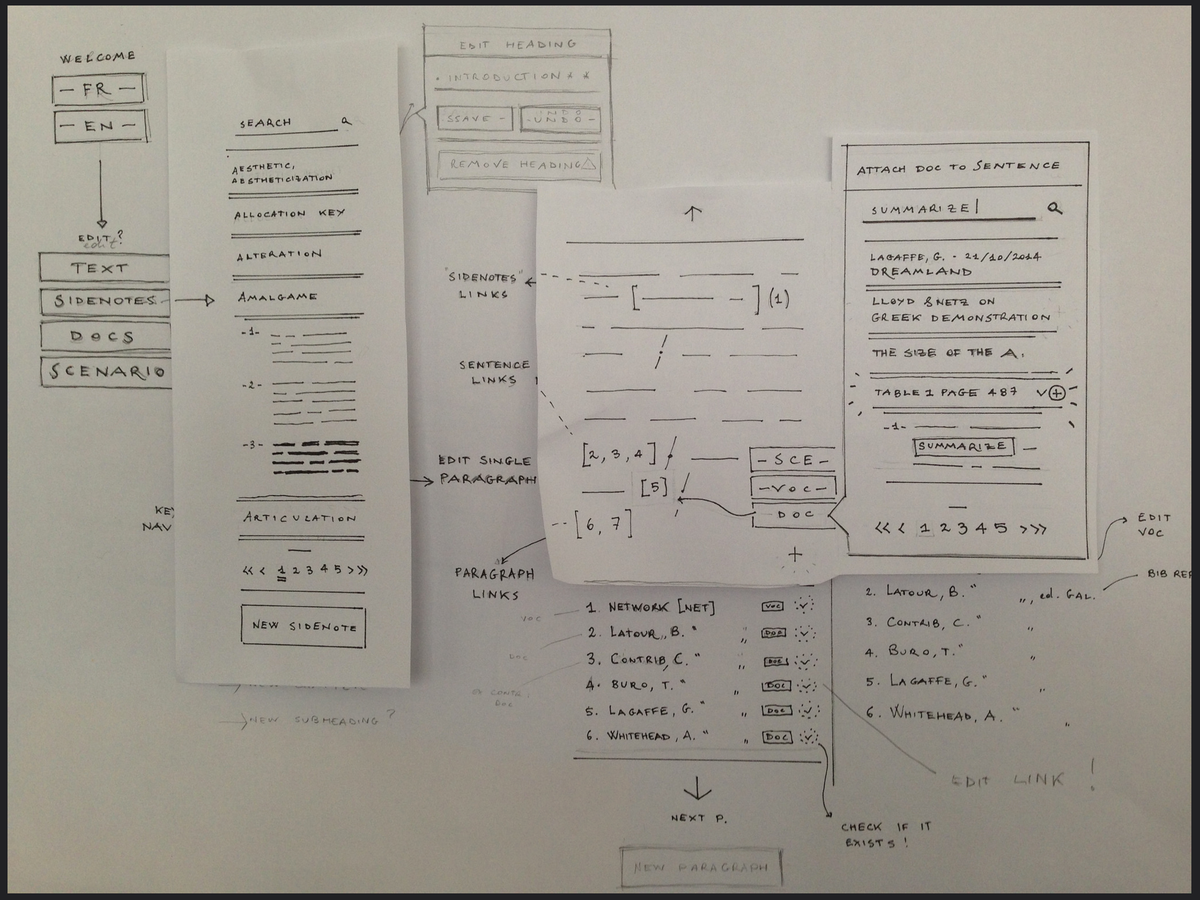 WELCOME
- FR -
- EN -
EDIT?
edit
TEXT
SIDENOTES
DOCS
SCENARIO
SEARCH
AESTHETIC,
AESTHETICIZATION
ALLOCATION KEY
ALTERATION
AMALGAME
-1-
-2-
-3-
ARTICULATION
<< < 1 2 3 4 5 > >>
NEW SIDENOTE
→ NEW SUBHEADING?
EDIT HEADING
INTRODUCTION * *
SSAVE -
UNDO -
REMOVE HEADING
"SIDENOTES"
LINKS
SENTENCE
LINKS
EDIT SINGLE
PARAGRAPH
PARAGRAPH
LINKS
[ — - ] (1)
[2, 3, 4]
[5]
-- [6, 7]
- SCE -
- VOC -
DOC
+
VOC
DOC
DOC
1. NETWORK [NET] VOC
2. LATOUR, B. " „ DOC
3. CONTRIB, C. " „ DOC
4. BURO, T. " „ DOC
5. LAGAFFE, G. " „ DOC
6. WHITEHEAD, A. " „ DOC
NEXT P.
NEW PARAGRAPH
ATTACH DOC TO SENTENCE
SUMMARIZE|
LAGAFFE, G. - 21/10/2014
DREAMLAND
LLOYD & NETZ ON
GREEK DEMONSTRATION
THE SIZE OF THE A.
TABLE 1 PAGE 487 V +
-1-
SUMMARIZE
<< < 1 2 3 4 5 > >>
EDIT
VOC
BIB REF
2. LATOUR, B. " „, ed. GAL.
3. CONTRIB, C. " „
4. BURO, T. " „
5. LAGAFFE, G. " „
6. WHITEHEAD, A. " „
EDIT LINK !
CHECK IF IT
EXISTS !